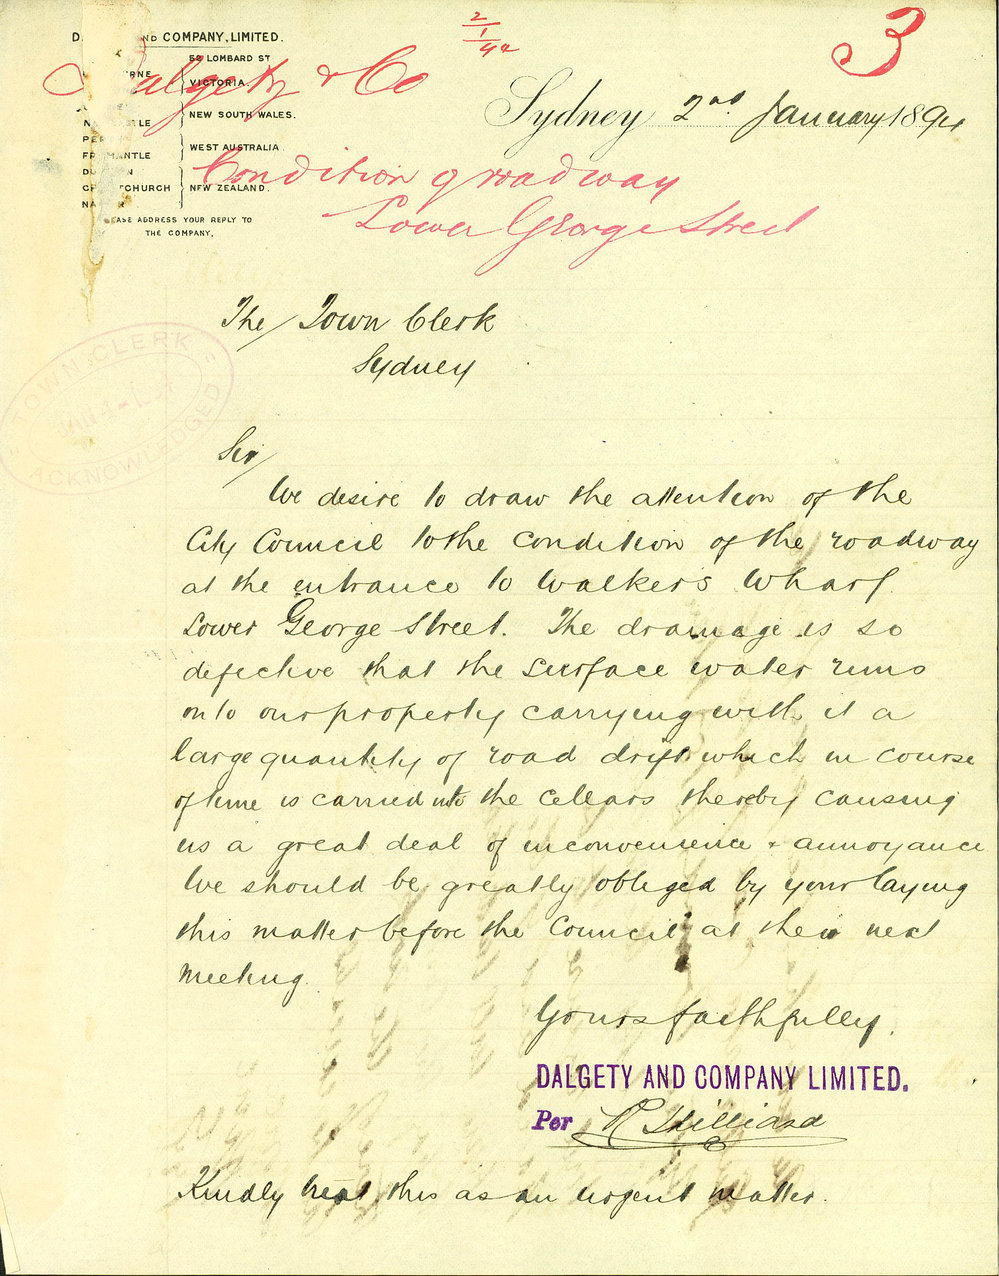 AND COMPANY, LIMITED.
52 LOMBARD ST
VICTORIA.
NEW SOUTH WALES.
WEST AUSTRALIA.
NEW ZEALAND.
ADDRESS YOUR REPLY TO
THE COMPANY.
2/1/94
3
Dalgety & Co
Sydney 2nd January 1894
Condition of roadway
Lower George Street
The Town Clerk
Sydney
TOWN CLERK
JAN 4
ACKNOWLEDGED
Sir/
We desire to draw the attention of the
City Council to the condition of the roadway
at the entrance to Walkers Wharf
Lower George Street. The drainage is so
defective that the surface water runs
onto our property carrying with it a
large quantity of road drift which in course
of time is carried into the cellars thereby causing
us a great deal of inconvenience & annoyance
We should be greatly obliged by your laying
this matter before the Council at their next
meeting.
Yours faithfully.
DALGETY AND COMPANY LIMITED.
Per Hilliard
Kindly treat this as an urgent matter.